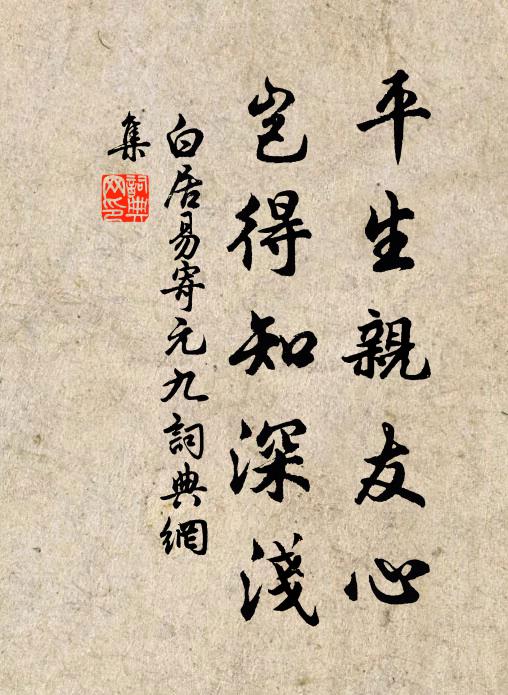 平生親友心
豈得知深淺
白居易寄元九詞典網
集
詞典网印